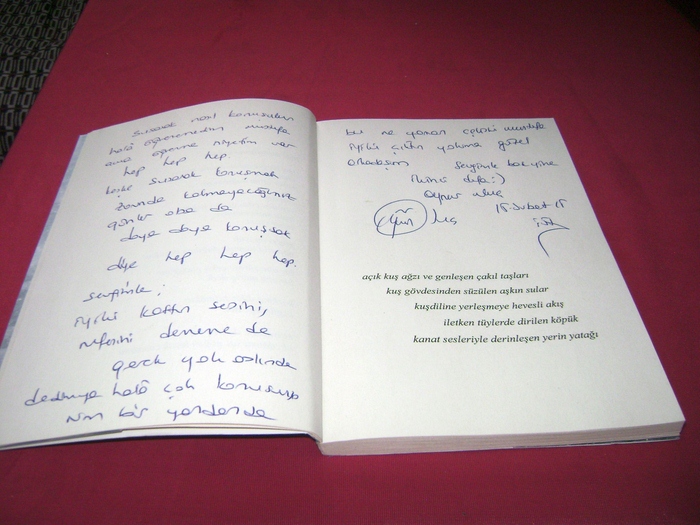 susarak nasıl konuşulur
halâ öğrenemedim mustafa
ama öğrenme niyetim var
hep hep hep.
keşke susarak konuşmak
zorunda kalmayacağımız
günler olsa da
doya doya konuşsak
diye hep hep hep.
sevgimle;
iyiki koftın sesini,
nefesini denene de
gerek yok aslında
dedimya halâ çok konuşuyo
rum bir yandanda
bu ne yaman çelişki mustafa
iyiki çıktın yoluma güzel
arkadaşım
sevgimle bak yine
ikinci defa:)
Aynur uluç
18 Şubat 15
ist
açık kuş ağzı ve genleşen çakıl taşları
kuş gövdesinden süzülen aşkın sular
kuşdiline yerleşmeye hevesli akış
iletken tüylerde dirilen köpük
kanat sesleriyle derinleşen yerin yatağı